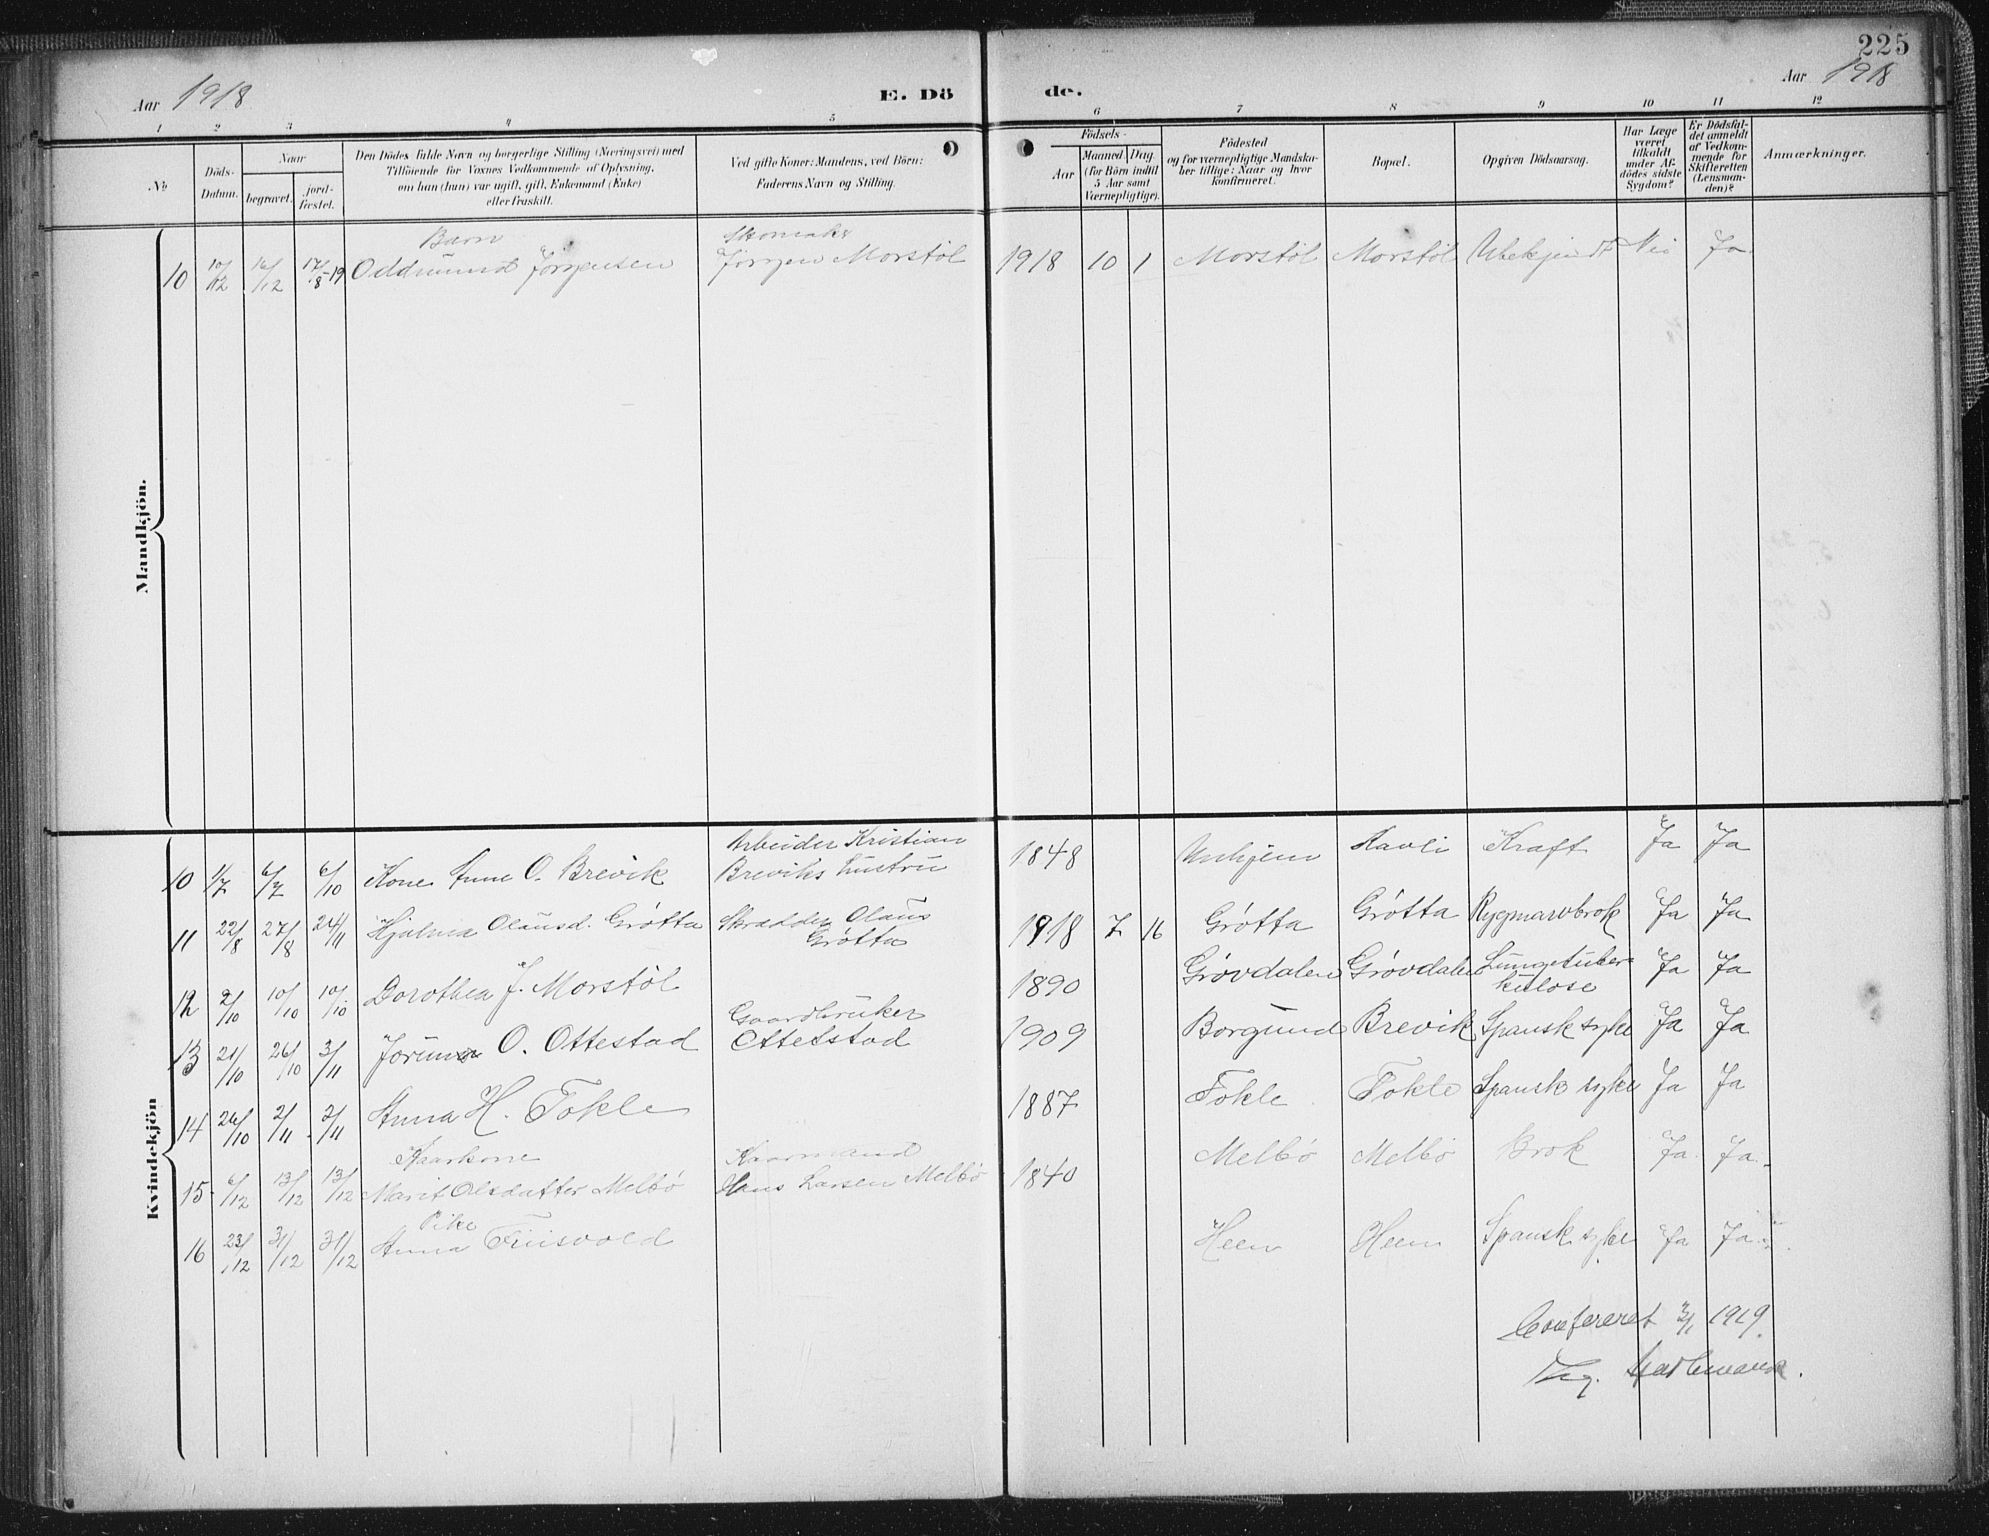 225
Aar 1918
E. Dö
de.
Aar 1918
1 2 3 4 5 6 7 8 9 10 11 12
No
Döds-Datum.
Naar
begravet.
jord-fæstet.
Den Dödes fulde Navn og borgerlige Stilling (Næringsvei) med
Tilföiende for Voxnes Vedkommende af Oplysning,
om han (hun) var ugift, gift, Enkemand (Enke)
eller fraskilt.
Ved gifte Koner: Mandens, ved Börn:
Faderens Navn og Stilling.
Födsels-
Aar
Maaned Dag
(for Börn indtil
5 Aar samt
Værnepligtige).
Födested
og for værnepligtige Mandska-
ber tillige: Naar og hvor
konfirmeret.
Bopæl.
Opgiven Dödsaarsag.
Har Læge
været
tilkaldt
under Af-
dödes sidste
Sygdom?
Er Dödsfal-
det anmeldt
af Vedkom-
mende for
Skifteretten
(Lensman-
den)?
Anmærkninger.
Mandkjön.
Barn Skomaker
10 10/12 16/12 17/8-19 Oddmund Jørgensen Jørgen Morstøl 1918 10 1 Morstøl Morstøl Ubekjendt Nei Ja
Kvindekjön
Arbeider Kristian
10 1/7 6/7 6/10 Kone Anne O. Brevik Breviks hustru 1848 Unhjem Havli Kraft Ja Ja
11 22/8 27/8 24/11 Hjalma Olausd. Grøtta Skrædder Olaus Grøtta 1918 7 16 Grøtta Grøtta Rygmarvbrok Ja Ja
12 2/10 10/10 10/10 Dorothea J. Morstøl 1890 Grøvdalen Grøvdalen Lungetuber-
kulose Ja Ja
Gaardbruker
13 21/10 26/10 3/11 Jorunn O. Ottestad Ottestad 1909 Borgund Brevik Spansk syke Ja Ja
14 26/10 2/11 2/11 Anna H. Tokle 1887 Tokle Tokle Spansk syke Ja Ja
Kaarkone Kaarmand
15 6/12 13/12 13/12 Marit Olsdatter Melbø Hans Larsen Melbø 1840 Melbø Melbø Brok Ja Ja
Pike
16 23/12 31/12 31/12 Anna Heen Heen Spansk syke Ja Ja
Confereret 3/1 1919.